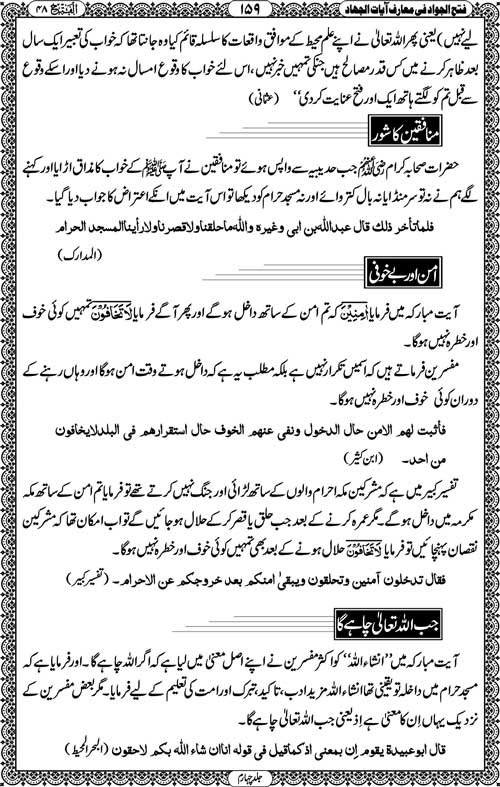 فتح الجواد فی معارف آیات الجهاد ۱۵۹ الفتح ۴۸
لیے نہیں) یعنی پھر اللہ تعالیٰ نے اپنے علم محیط کے موافق واقعات کا سلسلہ قائم کیا وہ جانتا تھا کہ خواب کی تعبیر ایک سال
بعد ظاہر کرنے میں کس قدر مصالح ہیں جنکی تمہیں خبر نہیں، اس لئے خواب کا وقوع امسال نہ ہونے دیا اور اسکے وقوع
سے قبل تم کو لگتے ہاتھ ایک اور فتح عنایت کردی‘‘ (عثمانی)
منافقین کا شور
حضرات صحابہ کرام رضی اللہ عنہم جب حدیبیہ سے واپس ہوئے تو منافقین نے آپ ﷺ کے خواب کا مذاق اڑایا اور کہنے
لگے ہم نے نہ تو سر منڈایا نہ بال کتروائے اور نہ مسجد حرام کو دیکھا تو اس آیت میں انکے اعتراض کا جواب دیا گیا۔
فلماتأخر ذلك قال عبداللہ بن ابی وغیرہ واللہ ماحلقنا ولاقصرنا ولارأینا المسجد الحرام
(المدارک)
امن اور بے خوفی
آیت مبارکہ میں فرمایا اٰمِنِیْنَ کہ تم امن کے ساتھ داخل ہوگے اور پھر آگے فرمایا لَا تَخَافُوْنَ تمہیں کوئی خوف اور
خطرہ نہیں ہوگا۔
مفسرین فرماتے ہیں کہ اسمیں تکرار نہیں ہے بلکہ مطلب یہ ہے کہ داخل ہوتے وقت امن ہوگا اور وہاں رہنے کے
دوران کوئی خوف اور خطرہ نہیں ہوگا۔
فأثبت لهم الامن حال الدخول ونفی عنهم الخوف حال استقرارهم فی البلد لایخافون
من احد۔ (ابن کثیر)
تفسیر کبیر میں ہے کہ مشرکین مکہ احرام والوں کے ساتھ لڑائی اور جنگ نہیں کرتے تھے تو فرمایا تم امن کے ساتھ مکہ
مکرمہ میں داخل ہوگے۔ مگر عمرہ کرنے کے بعد جب حلق یا قصر کر کے حلال ہو جائیں گے تو اب امکان تھا کہ مشرکین
نقصان پہنچائیں تو فرمایا لَا تَخَافُوْنَ حلال ہونے کے بعد بھی تمہیں کوئی خوف اور خطرہ نہیں ہوگا۔
فقال تدخلون آمنین وتحلقون ویبقیٰ امنکم بعد خروجکم عن الاحرام۔ (تفسیر کبیر)
جب اللہ تعالیٰ چاہے گا
آیت مبارکہ میں ’’انشاء اللہ‘‘ کو اکثر مفسرین نے اپنے اصل معنیٰ میں لیا ہے کہ اگر اللہ چاہے گا۔ اور فرمایا ہے کہ
مسجد حرام میں داخلہ تو یقینی تھا انشاء اللہ مزید ادب، تاکید، تبرک اور امت کی تعلیم کے لیے فرمایا۔ مگر بعض مفسرین کے
نزدیک یہاں اِن کا معنیٰ ہے اِذ یعنی جب اللہ تعالیٰ چاہے گا۔
قال ابوعبیدة یقوم اِن بمعنی اذ کما قیل فی قوله انا ان شاء اللہ بکم لاحقون (البحر المحیط)
جلد چہارم